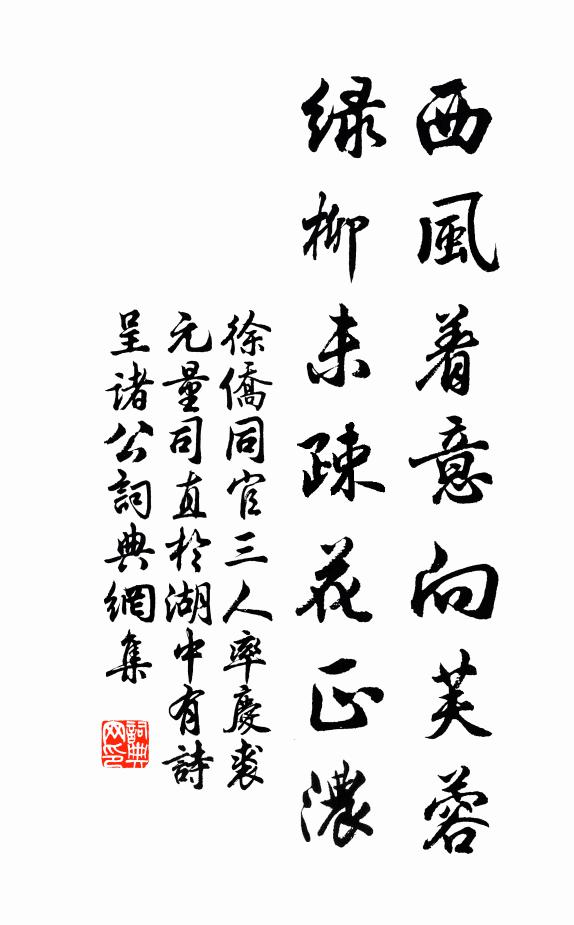 西風着意向芙蓉
緑柳未疎花正濃
徐僑同官三人率慶裘
元量司直於湖中有詩
呈诸公詞典網集
詞典
网印